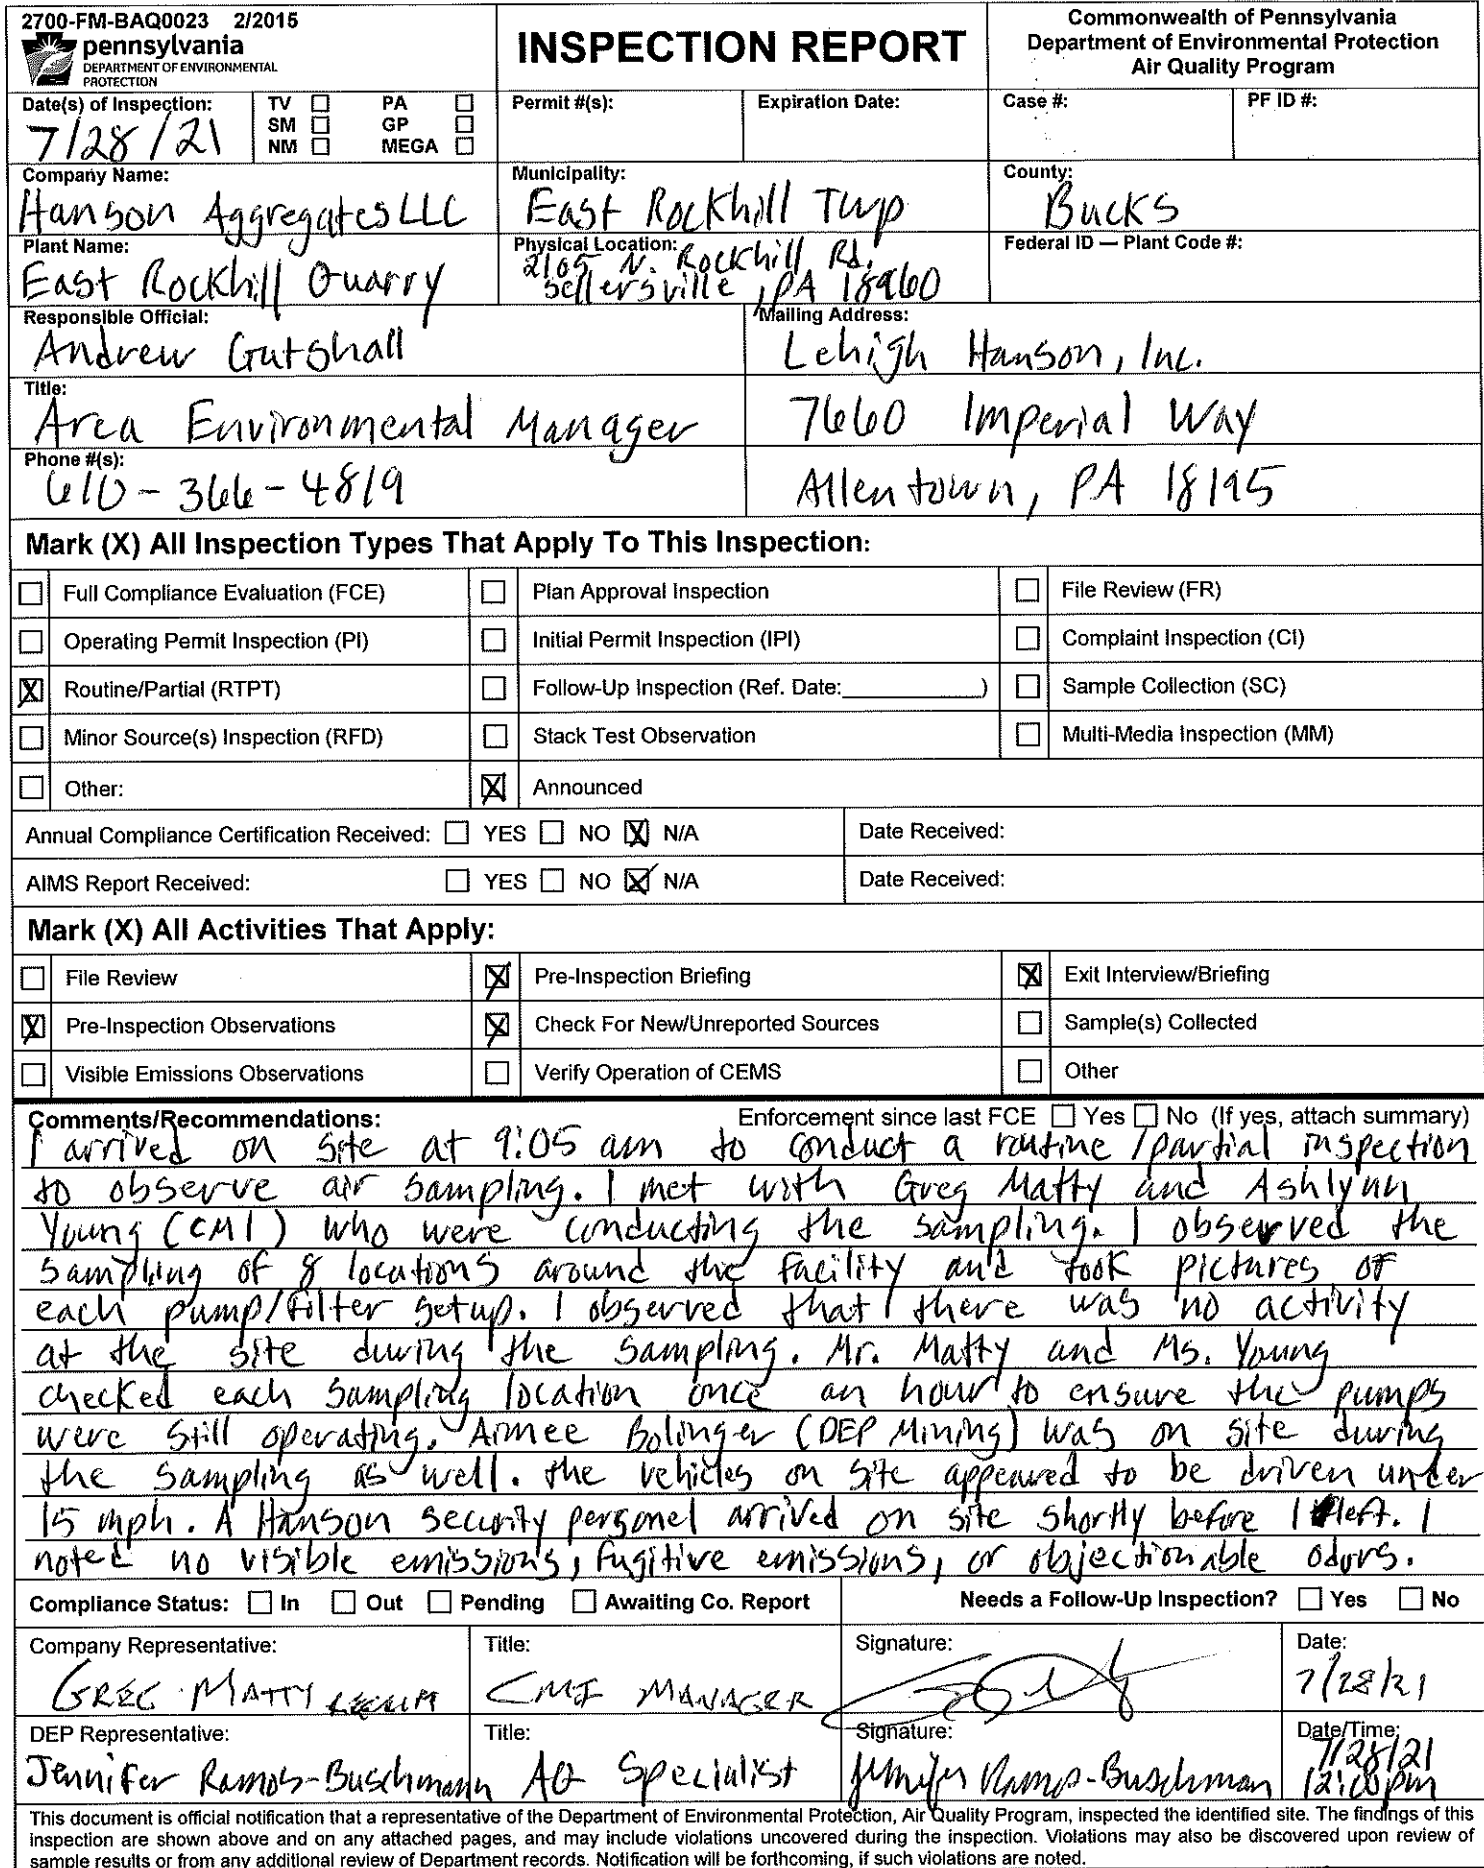 2700-FM-BAQ0023 2/2015
pennsylvania
DEPARTMENT OF ENVIRONMENTAL
PROTECTION
INSPECTION REPORT
Commonwealth of Pennsylvania
Department of Environmental Protection
Air Quality Program
Date(s) of Inspection:
7/28/21
TV ☐ PA ☐
SM ☐ GP ☐
NM ☐ MEGA ☐
Permit #(s):
Expiration Date:
Case #:
PF ID #:
Company Name:
Hanson Aggregates LLC
Municipality:
East Rockhill Twp
County:
Bucks
Plant Name:
East Rockhill Quarry
Physical Location:
2105 N. Rockhill Rd.
Sellersville, PA 18960
Federal ID — Plant Code #:
Responsible Official:
Andrew Gutshall
Mailing Address:
Lehigh Hanson, Inc.
Title:
Area Environmental Manager
7660 Imperial Way
Phone #(s):
610-366-4819
Allentown, PA 18195
Mark (X) All Inspection Types That Apply To This Inspection:
☐ Full Compliance Evaluation (FCE) ☐ Plan Approval Inspection ☐ File Review (FR)
☐ Operating Permit Inspection (PI) ☐ Initial Permit Inspection (IPI) ☐ Complaint Inspection (CI)
☒ Routine/Partial (RTPT) ☐ Follow-Up Inspection (Ref. Date:____________) ☐ Sample Collection (SC)
☐ Minor Source(s) Inspection (RFD) ☐ Stack Test Observation ☐ Multi-Media Inspection (MM)
☐ Other: ☒ Announced
Annual Compliance Certification Received: ☐ YES ☐ NO ☒ N/A Date Received:
AIMS Report Received: ☐ YES ☐ NO ☒ N/A Date Received:
Mark (X) All Activities That Apply:
☐ File Review ☒ Pre-Inspection Briefing ☒ Exit Interview/Briefing
☒ Pre-Inspection Observations ☒ Check For New/Unreported Sources ☐ Sample(s) Collected
☐ Visible Emissions Observations ☐ Verify Operation of CEMS ☐ Other
Comments/Recommendations: Enforcement since last FCE ☐ Yes ☐ No (If yes, attach summary)
I arrived on site at 9:05 am to conduct a routine/partial inspection
to observe air sampling. I met with Greg Matty and Ashlynn
Young (CMI) who were conducting the sampling. I observed the
sampling of 8 locations around the facility and took pictures of
each pump/filter setup. I observed that there was no activity
at the site during the sampling. Mr. Matty and Ms. Young
checked each sampling location once an hour to ensure the pumps
were still operating. Aimee Bolinger (DEP Mining) was on site during
the sampling as well. The vehicles on site appeared to be driven under
15 mph. A Hanson security personel arrived on site shortly before I left. I
noted no visible emissions, fugitive emissions, or objectionable odors.
Compliance Status: ☐ In ☐ Out ☐ Pending ☐ Awaiting Co. Report Needs a Follow-Up Inspection? ☐ Yes ☐ No
Company Representative:
GREG MATTY RECEIPT
Title:
CMI MANAGER
Signature:
Date:
7/28/21
DEP Representative:
Jennifer Ramos-Buschmann
Title:
AQ Specialist
Signature:
Jennifer Ramos-Buschman
Date/Time:
7/28/21
12:00pm
This document is official notification that a representative of the Department of Environmental Protection, Air Quality Program, inspected the identified site. The findings of this
inspection are shown above and on any attached pages, and may include violations uncovered during the inspection. Violations may also be discovered upon review of
sample results or from any additional review of Department records. Notification will be forthcoming, if such violations are noted.